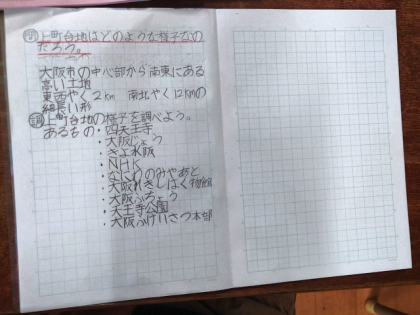 問 上町台地はどのような様子なの
だろう。
大阪市の中心部から南東にある
高い土地
東西やく2km 南北やく12kmの
細長い形
調 上町台地の様子を調べよう。
あるもの・四天王寺
・大阪じょう
・きよ水阪
・NHK
・なにわのみやあと
・大阪れきしはく物館
・大阪ふちょう
・天王寺公園
・大阪ふけいさつ本部